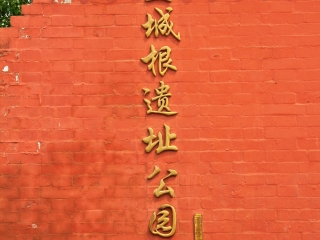 城根遗址公园